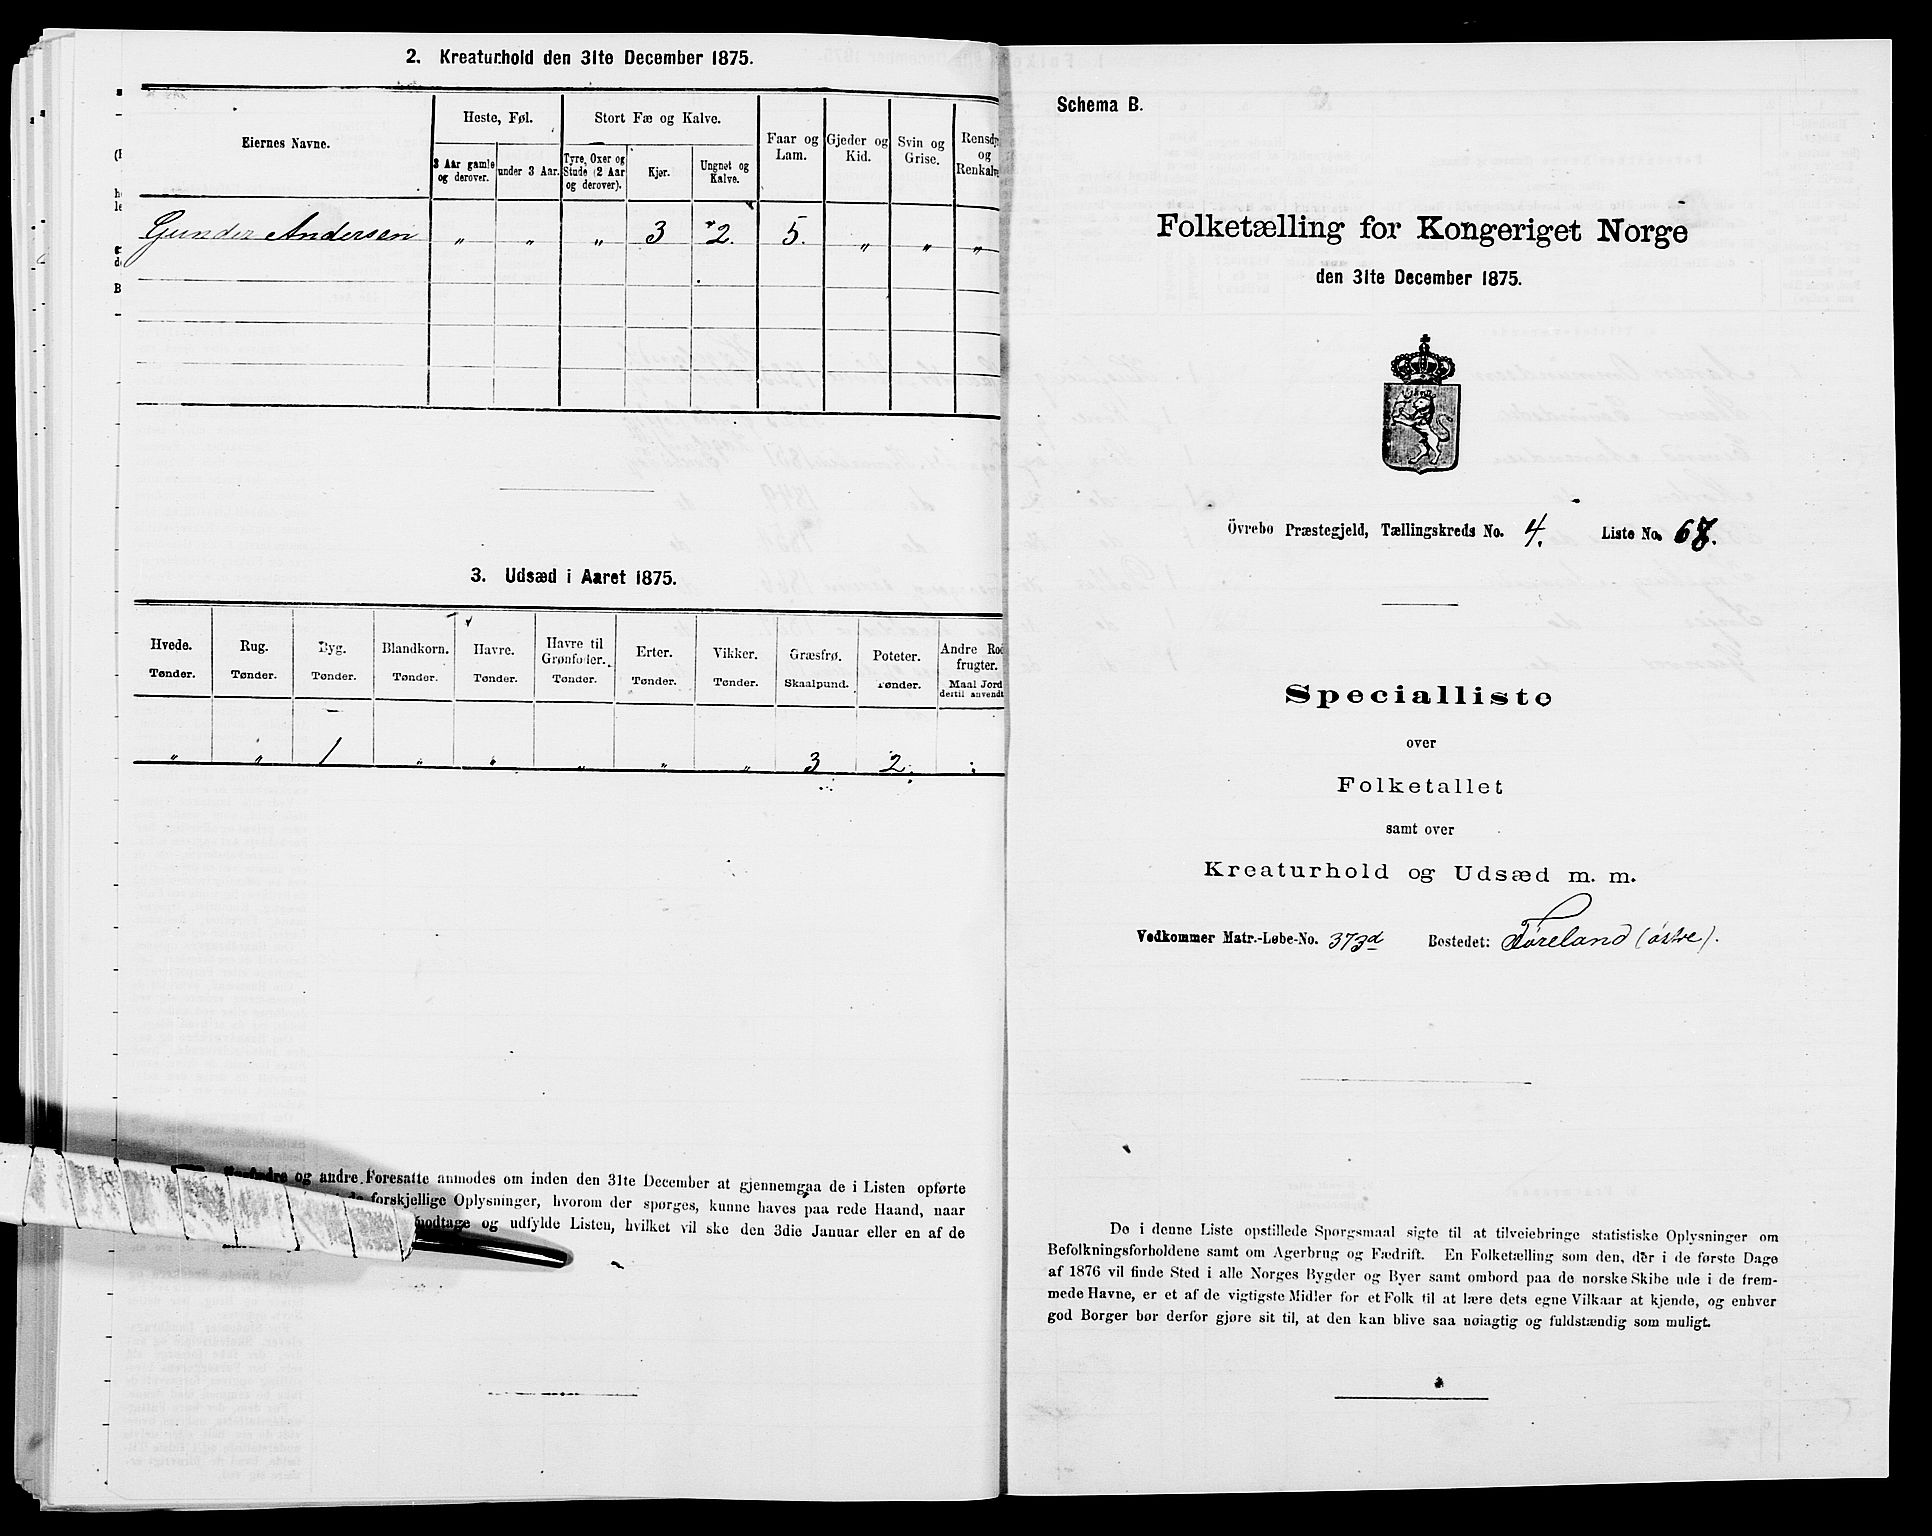 2. Kreaturhold den 31te December 1875.
Eiernes Navne.
Heste, Føl.
Stort Fæ og Kalve.
Faar og Lam.
Gjeder og Kid.
Svin og Grise.
og
3 Aar gamle og derover.
under 3 Aar.
Tyre, Oxer og Stude (2 Aar og derover).
Kjør.
Ungnøt og Kalve.
Gunder Andersen " " " 3 2. 5. " " "
3. Udsæd i Aaret 1875.
Hvede. Rug. Byg. Blandkorn. Havre. Havre til Grønfoder. Erter. Vikker. Græsfrø. Poteter. Andre Rod frugter.
Tønder. Tønder. Tønder. Tønder. Tønder. Tønder. Tønder. Tønder. Skaalpund. Tønder. Maal Jord dertil anvendt
" " 1 " " " " " 3 2.
og andre Foresatte anmodes om inden den 31te December at gjennemgaa de i Listen opførte
forskjellige Oplysninger, hvorom der spørges, kunne haves paa rede Haand, naar
modtage og udfylde Listen, hvilket vil ske den 3die Januar eller en af de
Schema B.
Folketælling for Kongeriget Norge
den 31te December 1875.
Övrebo Præstegjeld, Tællingskreds No. 4. Liste No. 67.
Specialliste
over
Folketallet
samt over
Kreaturhold og Udsæd m. m.
Vedkommer Matr.-Løbe-No. 373d Bostedet: Føreland (østre).
De i denne Liste opstillede Spørgsmaal sigte til at tilveiebringe statistiske Oplysninger om
Befolkningsforholdene samt om Agerbrug og Fædrift. En Folketælling som den, der i de første Dage
af 1876 vil finde Sted i alle Norges Bygder og Byer samt ombord paa de norske Skibe ude i de frem-
mede Havne, er et af de vigtigste Midler for et Folk til at lære dets egne Vilkaar at kjende, og enhver
god Borger bør derfor gjøre sit til, at den kan blive saa nøiagtig og fuldstændig som muligt.